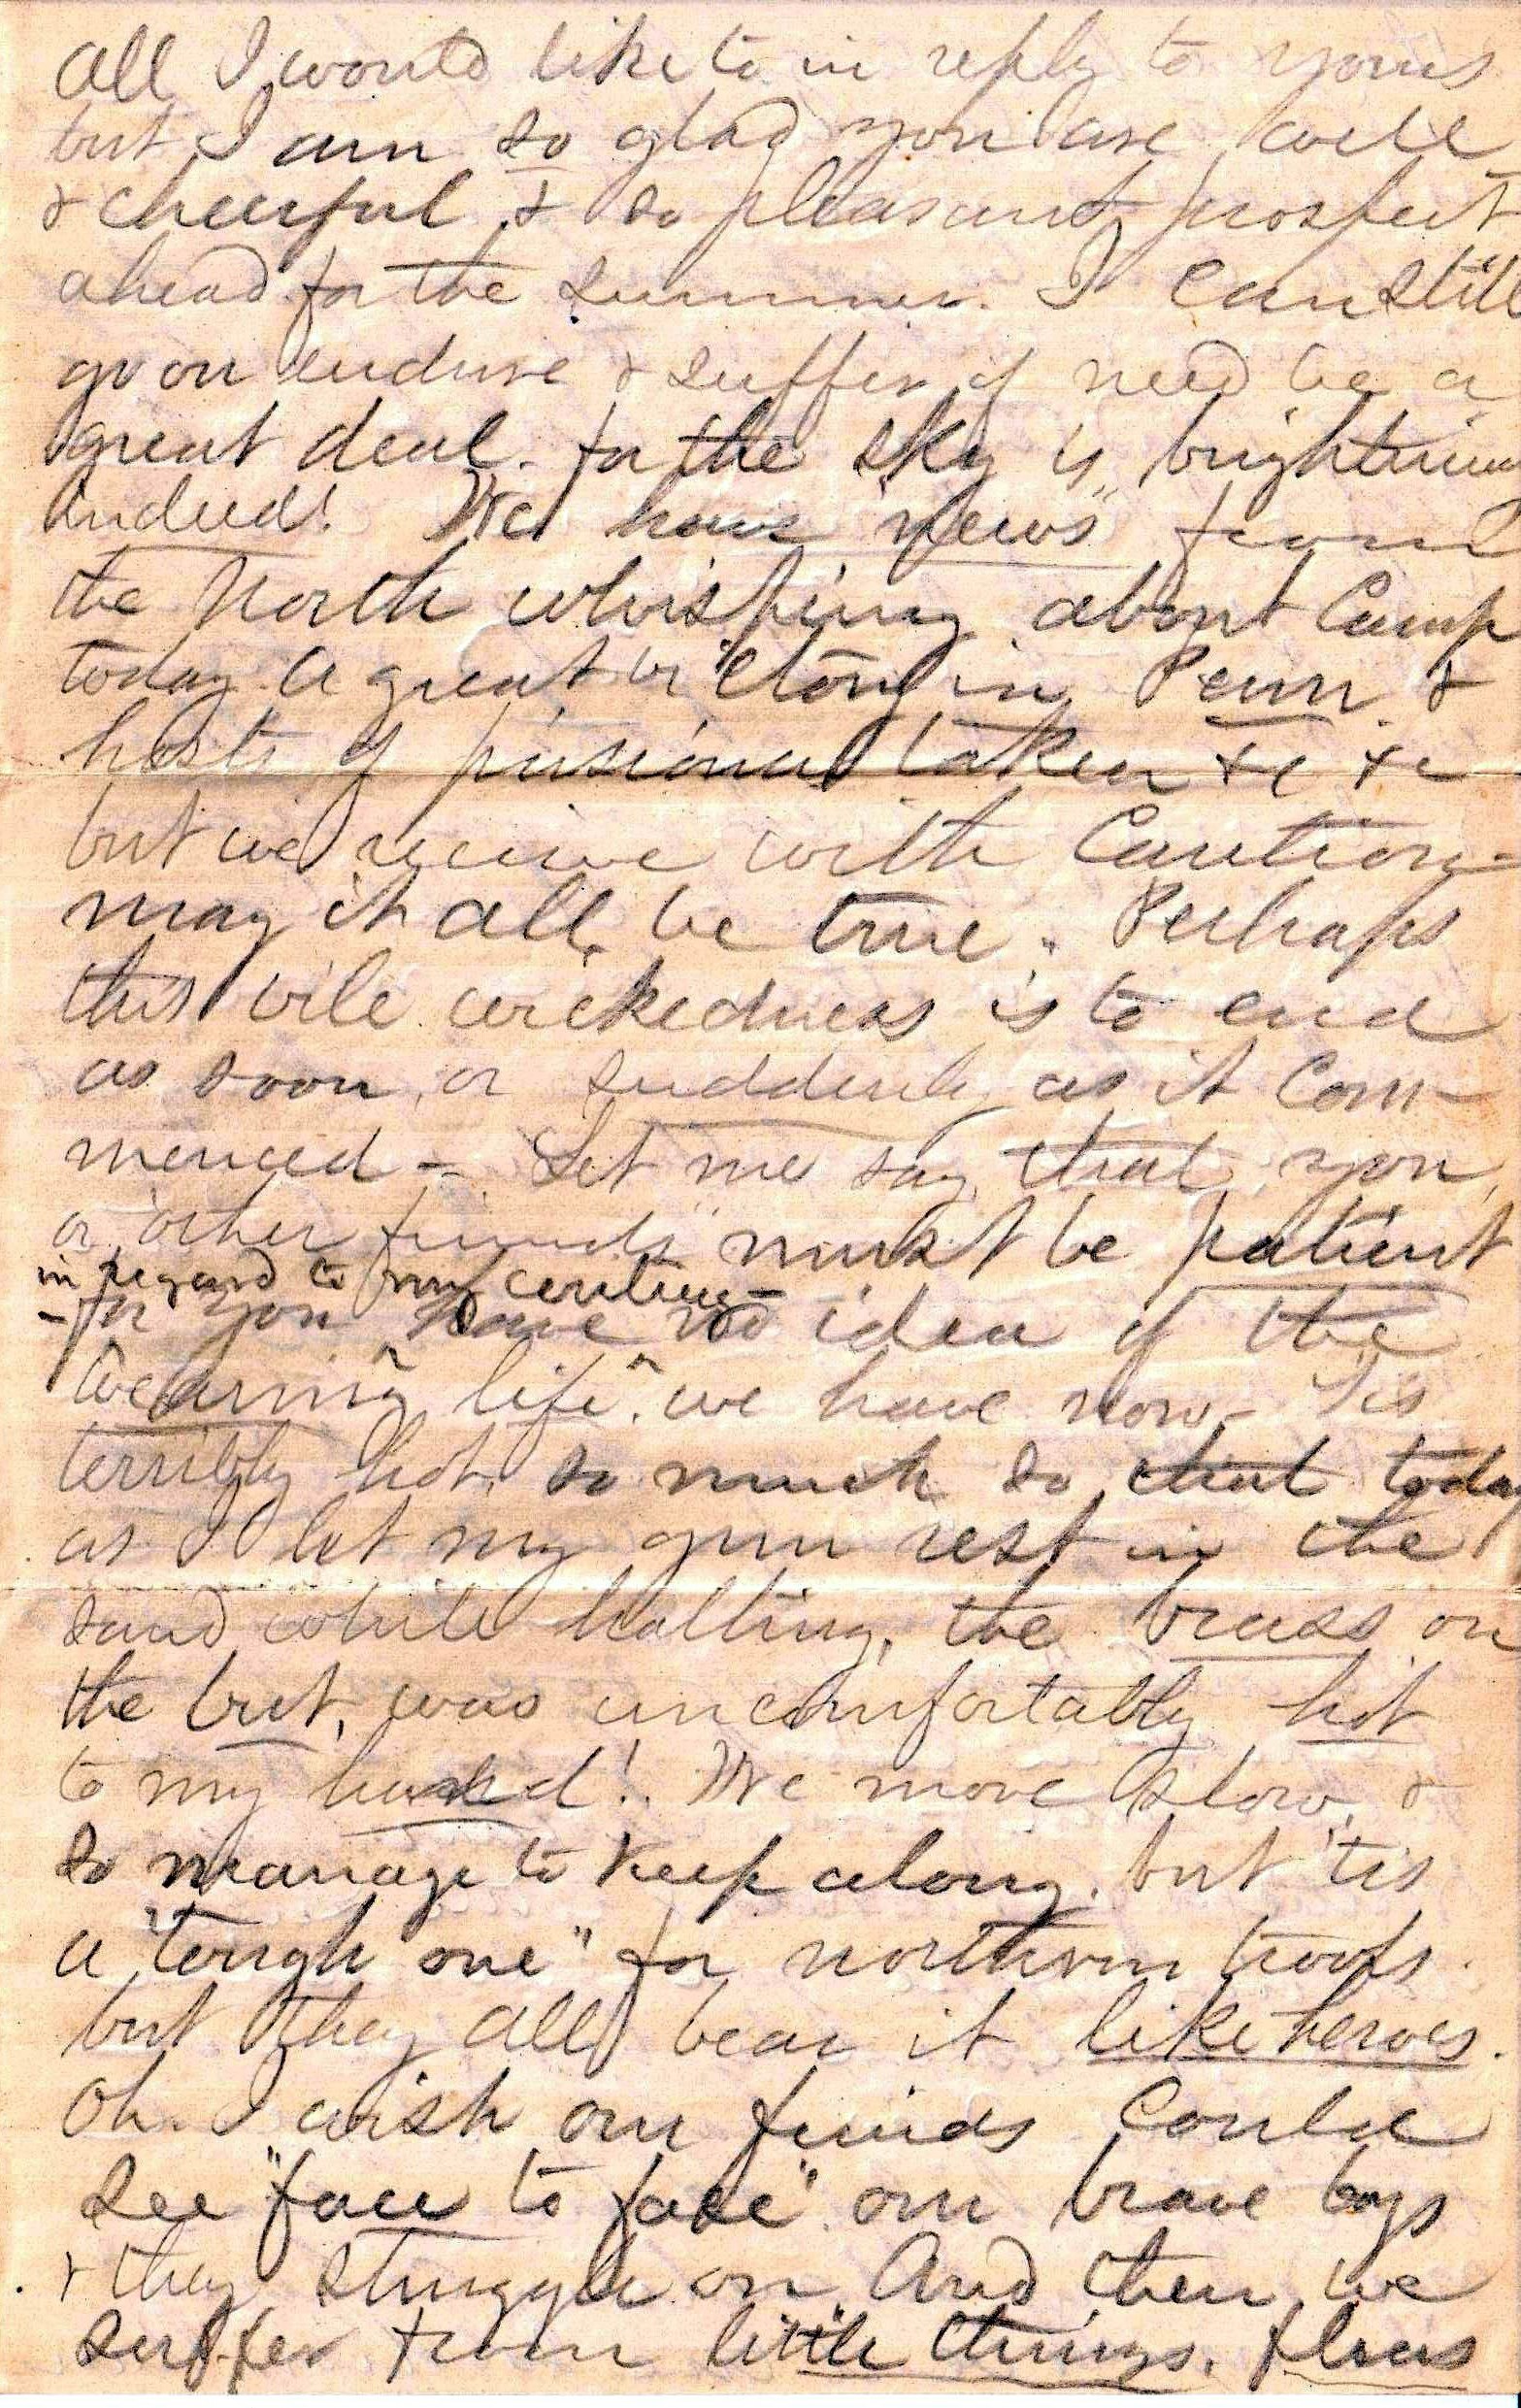 all I would like to in reply to yours
but I am so glad you are well
& cheerful & so pleasant prospect
ahead for the summer. I can still
go on endure & suffer if need be a
great deal. for the sky is brightening
indeed! We have "news" from
the North whisping about Camp
today. A great victory in Penn. &
hosts of prisioners taken &c &c
but we receive with Caution -
may it all be true. Perhaps
this vile wickedness is to end
as soon, or suddenly as it Com-
menced - Let me say that you,
or "other friends" must be patient
in regard to my writing -
- for you have no idea of the
"wearing life" we have now - 'Tis
terribly hot. so much so that today
as I let my gun rest in the
sand while halting, the brass on
the but, was uncomfortably hot
to my hand! We move slow, &
so manage to keep along. but 'tis
a "tough one" for northern troops.
but they all bear it like heroes.
Oh. I wish our friends Could
see "face to face" our brave boys
& they struggle on. And then we
suffer from little things. fleas